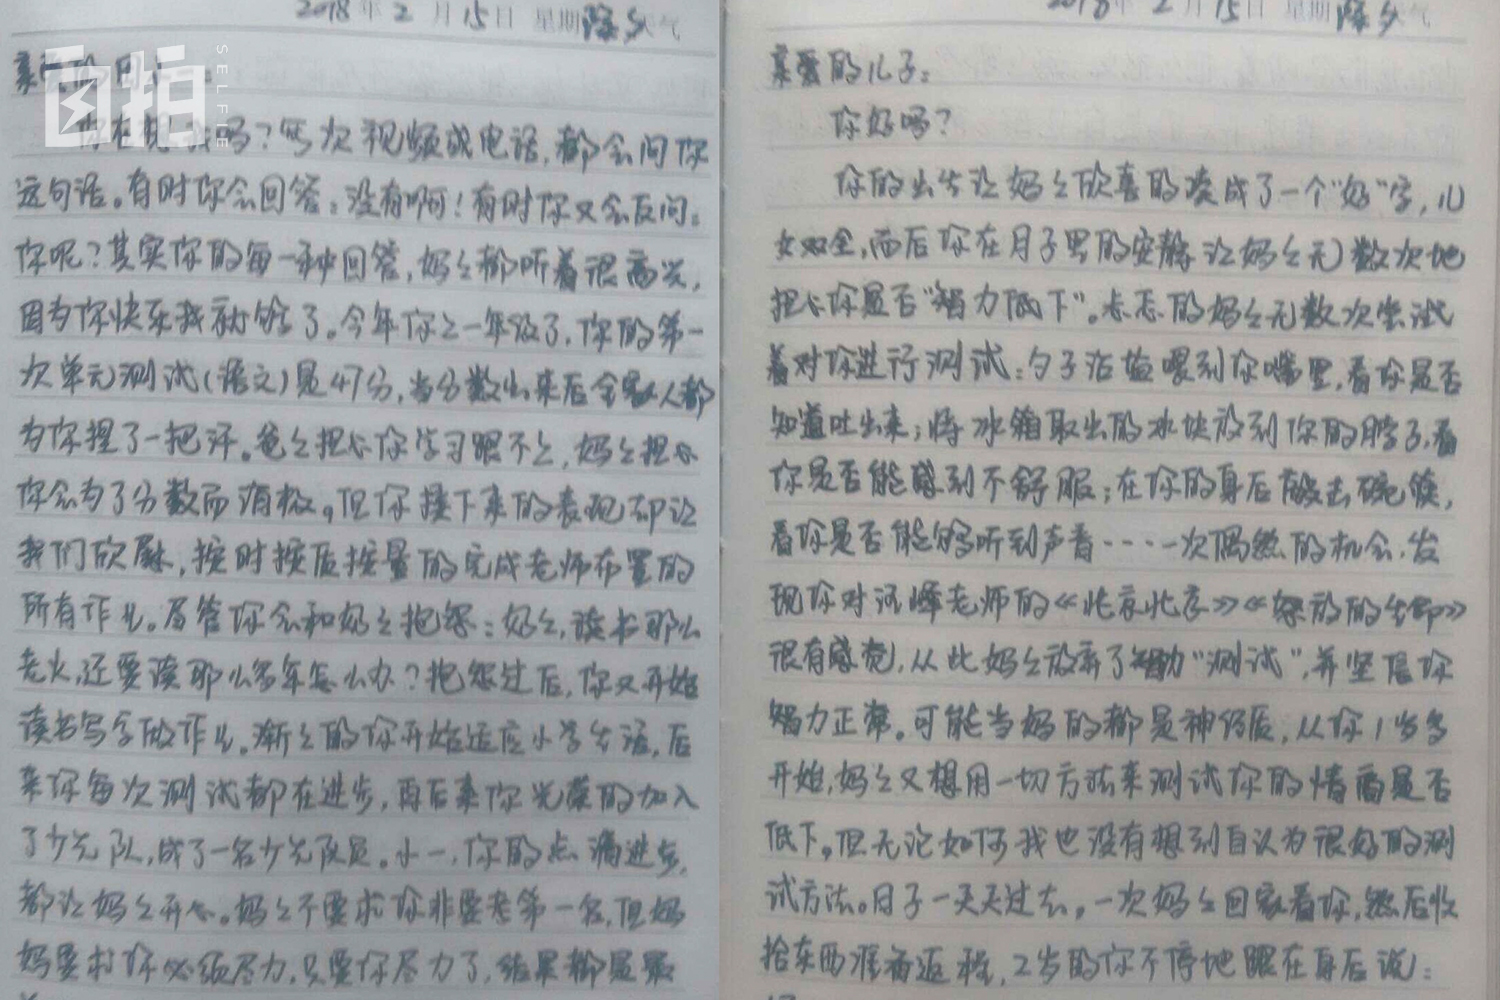 2018年2月15日 星期 除夕 天气
你在想我吗？每次视频或电话，都会问你
这句话。有时你会回答：没有啊！有时你又会反问：
你呢？其实你的每一种回答，妈妈都听着很高兴，
因为你快乐我就够了。今年你上一年级了，你的第一
次单元测试（语文）是47分，当分数出来后全家人都
为你捏了一把汗。爸爸担心你学习跟不上，妈妈担心
你会为了分数而消极。但你接下来的表现却让
我们欣慰，按时按质按量的完成老师布置的
所有作业。尽管你会和妈妈抱怨：妈妈，读书那么
老火，还要读那么多年怎么办？抱怨过后，你又开始
读书写字做作业。渐渐的你开始适应小学生活，后
来你每次测试都在进步，再后来你光荣的加入
了少先队，成了一名少先队员。小一，你的点滴进步，
都让妈妈开心。妈妈不要求你非要考第一名，但妈
妈要求你必须尽力，只要你尽力了，结果都是最
2018年2月15日 星期 除夕 天气
亲爱的儿子：
你好吗？
你的出生让妈妈欣喜的凑成了一个“好”字，儿
女双全，而后你在月子里的安静让妈妈无数次地
担心你是否“智力低下”。忐忑的妈妈无数次尝试
着对你进行测试：勺子沾盐喂到你嘴里，看你是否
知道吐出来；将冰箱取出的冰块放到你的脖子，看
你是否能感到不舒服；在你的身后敲击碗筷，
看你是否能够听到声音····一次偶然的机会，发
现你对汪峰老师的《北京北京》《怒放的生命》
很有感觉，从此妈妈放弃了智力“测试”，并坚信你
智力正常。可能当妈的都是神经质，从你1岁多
开始，妈妈又想用一切方法来测试你的情商是否
低下。但无论如何我也没有想到自认为很好的测
试方法。日子一天天过去，一次妈妈回家看你，然后收
拾东西准备返程，2岁的你不停地跟在身后说：
自拍
SELFIE